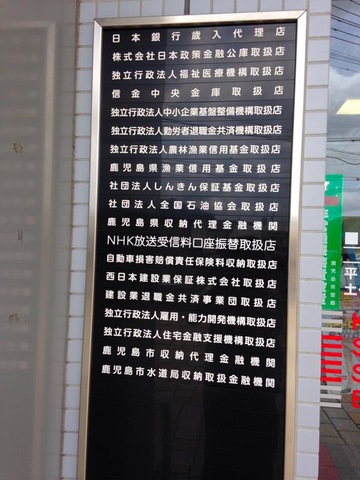 日本銀行歳入代理店
株式会社日本政策金融公庫取扱店
独立行政法人福祉医療機構取扱店
信金中央金庫取扱店
独立行政法人中小企業基盤整備機構取扱店
独立行政法人勤労者退職金共済機構取扱店
独立行政法人農林漁業信用基金取扱店
鹿児島県漁業信用基金取扱店
社団法人しんきん保証基金取扱店
社団法人全国石油協会取扱店
鹿児島県収納代理金融機関
NHK放送受信料口座振替取扱店
自動車損害賠償責任保険料収納取扱店
西日本建設業保証株式会社取扱店
建設業退職金共済事業団取扱店
独立行政法人雇用・能力開発機構取扱店
独立行政法人住宅金融支援機構取扱店
鹿児島市収納代理金融機関
鹿児島市水道局収納取扱金融機関